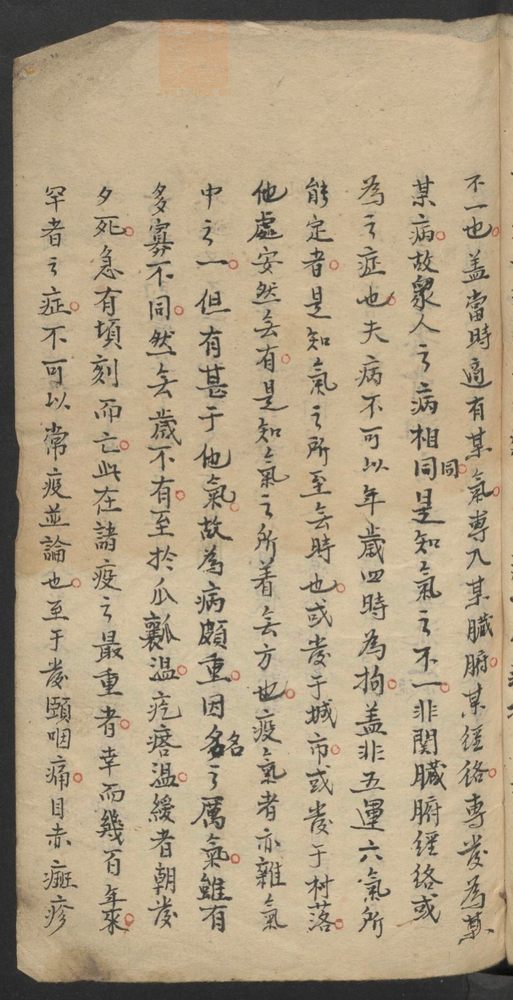 不一也盖當時適有某氣專入某臟腑某經絡專發為某
某病故衆人之病相同同是知氣之不一非関臟腑經絡或
為之症也夫病不可以年歲四時為拘盖非五運六氣所
能定者是知氣之所至無時也或發于城市或發于村落
他處安然無有是知氣之所着無方也疫氣者亦雜氣
中之一但有甚于他氣故為病頗重因名名之厲氣雖有
多寡不同然無歲不有至於瓜瓤温疙瘩温緩者朝發
夕死急有頃刻而亡此在諸疫之最重者幸而幾百年來
罕者之症不可以常疫並論也至于發頤咽痛目赤斑疹